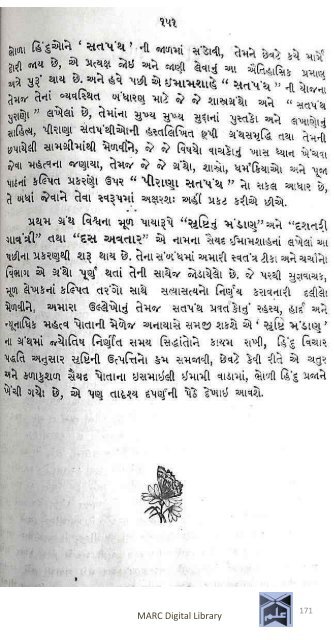 ૧૫૧
ભોળા હિંદુઓને ' સતપંથ ' ની જાળમાં સંડોવી, તેમને છેવટે કયે માર્ગે
દોરી જાય છે, એ પ્રત્યક્ષ જોઈ અને જાણી લેવાનું આ ઐતિહાસિક પ્રમાણ
અત્રે પુરૂં થાય છે. અને હવે પછી એ ઈમામશાહે " સતપંથ " ની યોજના
તેમજ તેનાં વ્યવસ્થિત બંધારણ માટે જે જે શાસ્ત્રગ્રંથો અને " સતપંથ
પુરાણો " લખેલાં છે, તેમાંના મુખ્ય મુખ્ય મુદ્દાનાં પુસ્તકો અને લખાણોનું
સાહિત્ય, પીરાણા સતપંથીઓની હસ્તલિખિત છૂપી ગ્રંથસમૃદ્ધિ તથા તેમની
છપાયેલી સામગ્રીમાંથી મેળવીને, જે જે વિષયો વાચકોનું ખાસ ધ્યાન ખેંચવા
જેવા મહત્વના જણાયા, તેમજ જે જે ગ્રંથો, શાસ્ત્રો, ધર્મક્રિયાઓ અને પૂજા
પાઠનાં કલ્પિત પ્રકરણો ઉપર " પીરાણા સતપંથ " નો સકલ આધાર છે,
તે બધાં જેવાને તેવા સ્વરૂપમાં અક્ષરશઃ અહીં પ્રકટ કરીએ છીએ.
પ્રથમ ગ્રંથ વિશ્વના મૂળ પાયારૂપે "સૃષ્ટિનું મંડાણ" અને "દશતરી
ગાવંત્રી" તથા "દસ અવતાર" એ નામના સૈયદ ઈમામશાહનાં લખેલાં આ
પછીના પ્રકરણથી શરૂ થાય છે. તેના સંબંધમાં અમારી સ્વતંત્ર ટીકા અને ચર્ચાનો
વિભાગ એ ગ્રંથો પૂર્ણ થતાં તેની સાથેજ જોડાયેલો છે. જે પરથી સુજ્ઞવાચક,
મૂળ લેખકનાં કલ્પિત તરંગો સાથે સત્યાસત્યનો નિર્ણય કરાવનારી દલીલો
મેળવીને, અમારા ઉલ્લેખોનું તેમજ સતપંથ પ્રવર્તકોનું રહસ્ય, હાર્દ અને
ન્યૂનાધિક મહત્વ પોતાની મેળેજ અનાયાસે સમજી શકશે એ ' સૃષ્ટિ મંડાણ '
ના ગ્રંથમાં જ્યોતિષ નિર્ણીત સમય સિદ્ધાંતોને કાયમ રાખી, હિંદુ વિચાર
પદ્ધતિ અનુસાર સૃષ્ટિની ઉત્પત્તિનો ક્રમ સમજાવી, છેવટે કેવી રીતે એ ચતુર
અને કળાકુશળ સૈયદ પોતાના ઇસમાઇલી ઈમામી વાડામાં, ભોળી હિંદુ પ્રજાને
ખેંચી ગયો છે, એ પણ તાદૃશ્ય દર્પણની પેઠે દેખાઈ આવશે.
MARC Digital Library
171